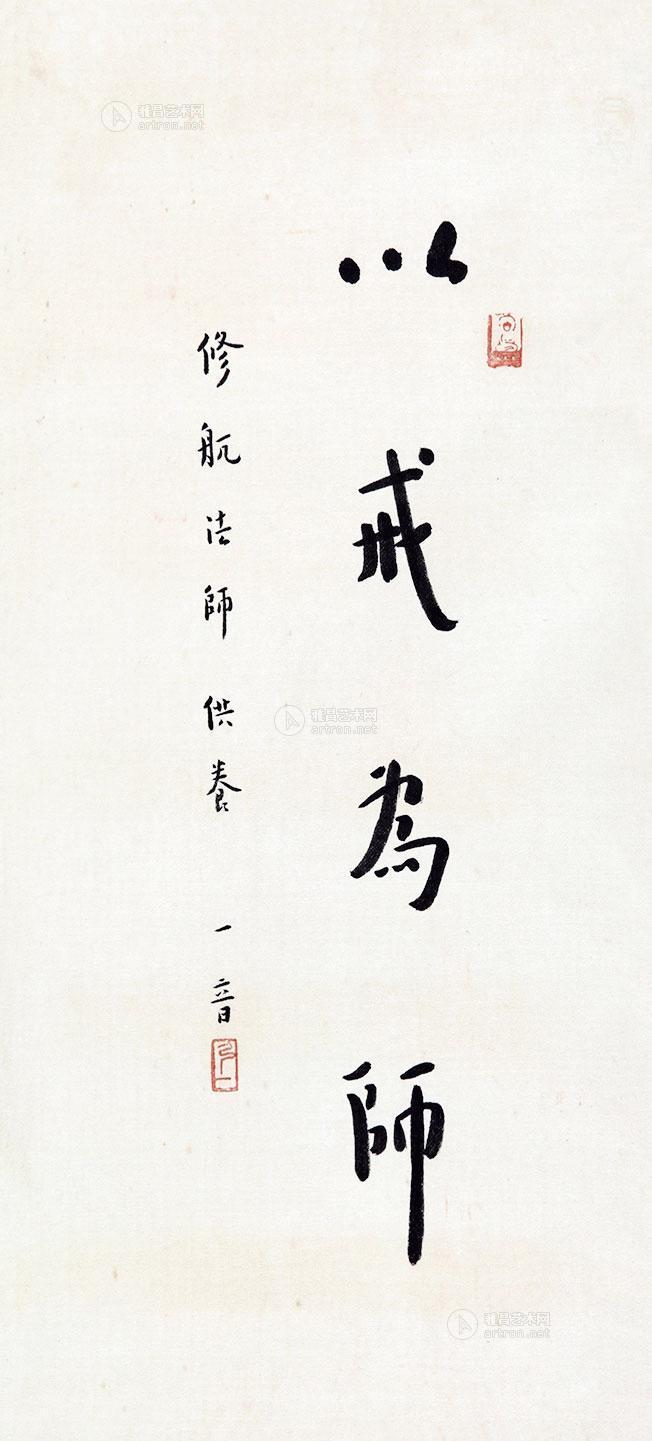 以戒為師
修航法師供養 一音
雅昌艺术网
artron.net
雅昌艺术网
artron.net
雅昌艺术网
artron.net